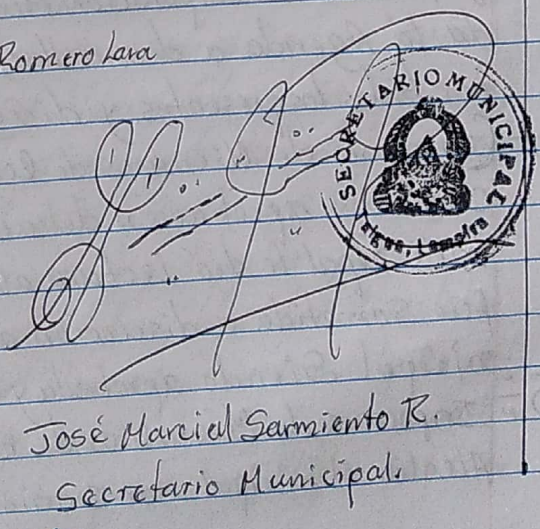 Romero Lara
SECRETARIO MUNICIPAL
Lempira
José Marcial Sarmiento R.
Secretario Municipal.